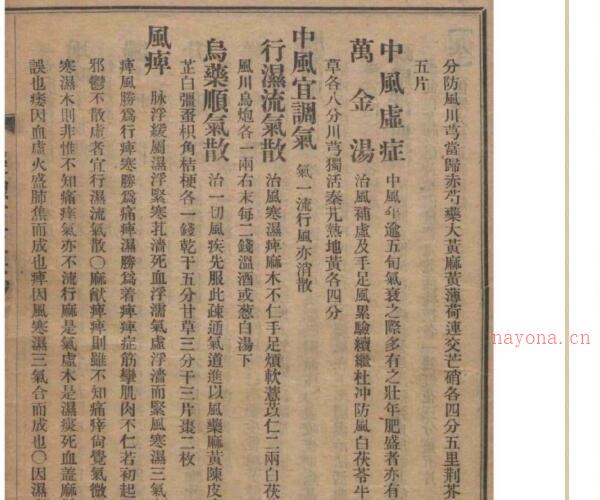 分防風川芎當歸赤芍藥大黃麻黃薄荷連交芒硝各四分五里荆芥
五片
中風虛症 中風年逾五旬氣衰之際多有之壯年肥盛者亦有
萬金湯 治風補虛及手足風累驗續繼杜冲防風白茯苓牛
草各八分川芎獨活秦艽熟地黃各四分
中風宜調氣 氣一流行風亦消散
行濕流氣散 治風寒濕痺麻木不仁手足煩軟薏苡仁二兩白茯
風川烏炮各一兩右末每二錢溫酒或葱白湯下
烏藥順氣散 治一切風疾先服此疎通氣道進以風藥麻黃陳皮
芷白彊蚕枳角桔梗各一錢乾干五分甘草三分干三片棗二枚
風痺 脉浮緩屬濕浮緊寒芤濇死血浮濡氣虛浮濇而緊風寒濕三氣
痺風勝爲行痺寒勝爲痛痺濕勝爲着痺痺症筋攣肌肉不仁若初起
邪鬱不散虛者宜行濕流氣散〇麻猷痺痺則雖不知痛痒尙覺氣微
寒濕木則非惟不知痛痒氣亦不流行麻是氣虛木是濕痰死血盖麻
誤也痿因血虛火盛肺焦而成也痺因風寒濕三氣合而成也〇因濕
nayona.cn